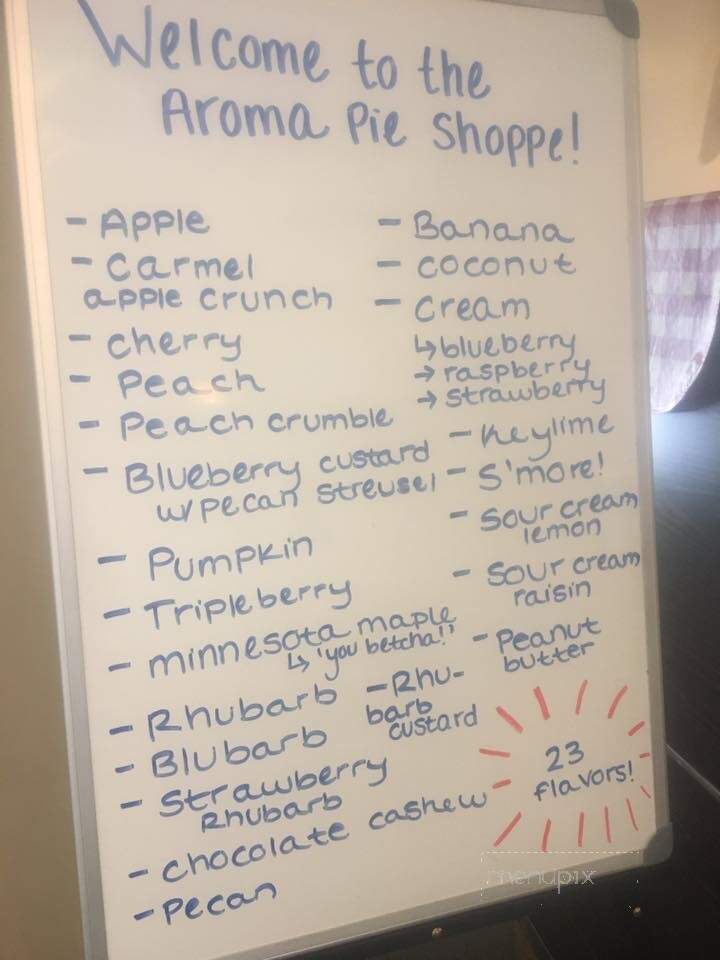 Welcome to the
Aroma Pie Shoppe!
- Apple
- Carmel
apple crunch
- Cherry
- Peach
- Peach crumble
- Blueberry custard
w/pecan streusel
- Pumpkin
- Tripleberry
- minnesota maple
↳ 'you betcha!'
- Rhubarb
- Blubarb
- Strawberry
Rhubarb
- chocolate cashew
- Pecan
- Rhu-
barb
custard
- Banana
- coconut
- cream
↳ blueberry
→ raspberry
→ strawberry
- Keylime
- S'more!
- Sour cream
lemon
- Sour cream
raisin
- Peanut
butter
23
flavors!
menupix